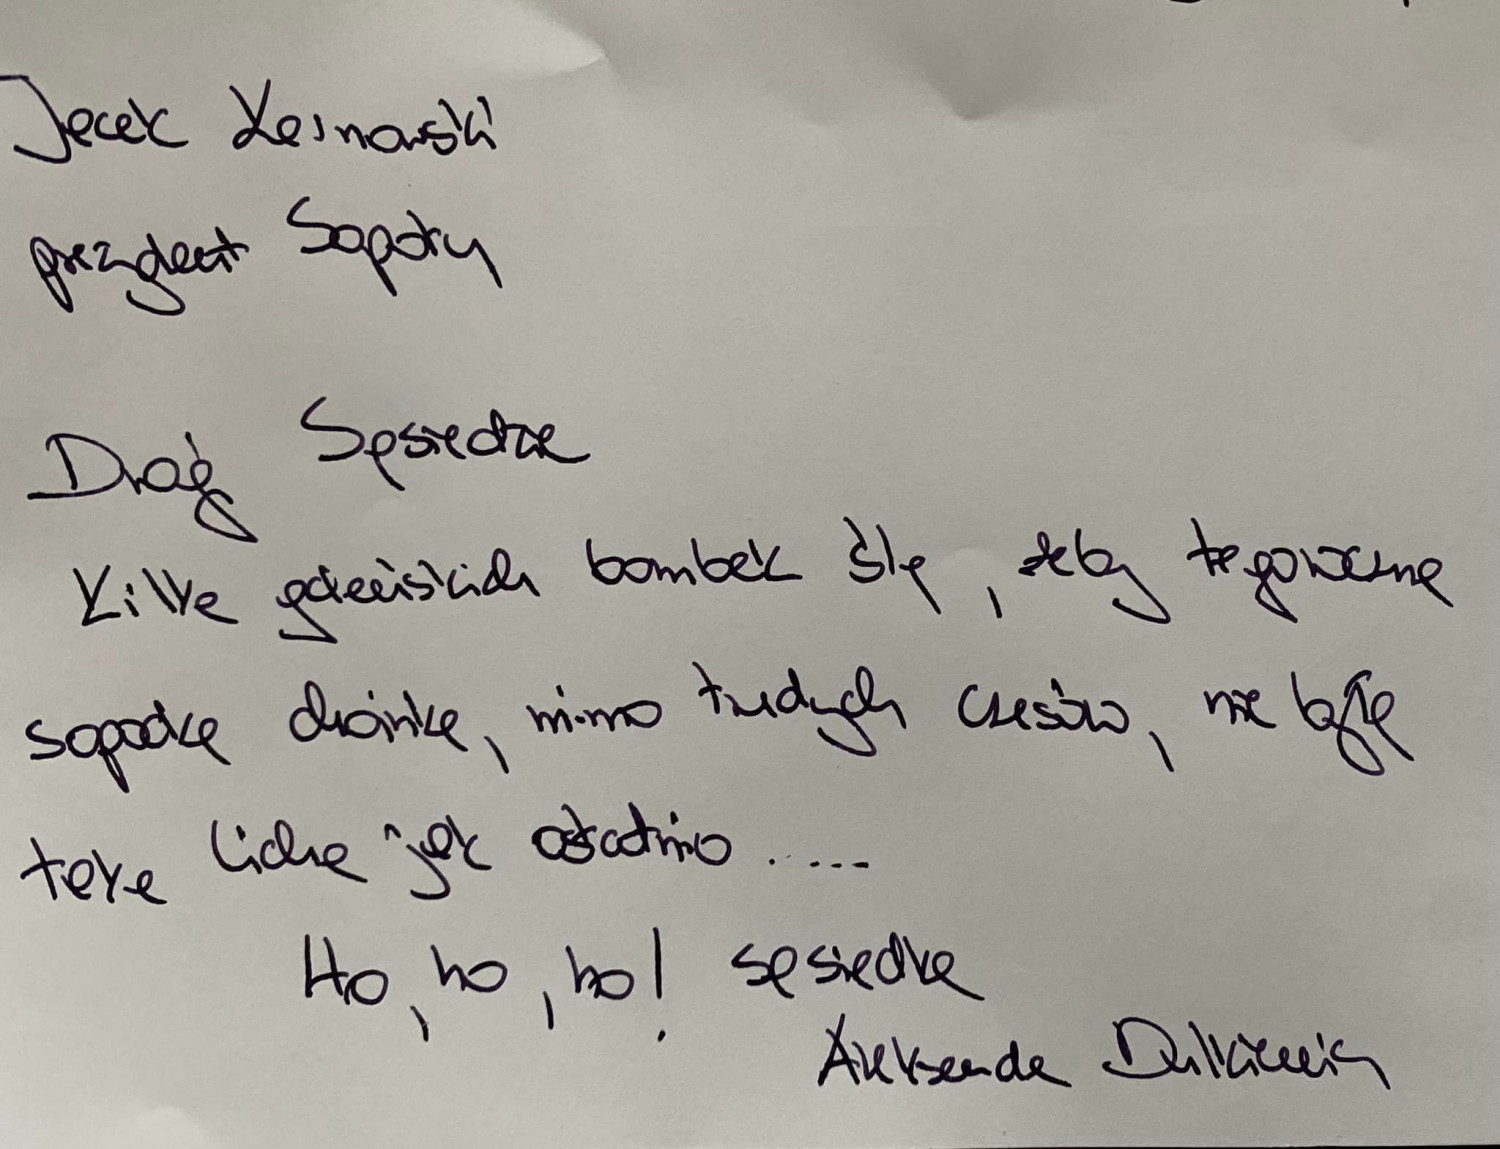 Jacek Karnowski
prezydent Sopotu
Drogi Sąsiedzie
Kilka gdańskich bombek ślę, żeby tegoroczna
sopocka choinka, mimo trudnych czasów, nie była
taka licha jak ostatnio .....
Ho, ho, ho! sąsiadka
Aleksandra Dulkiewicz